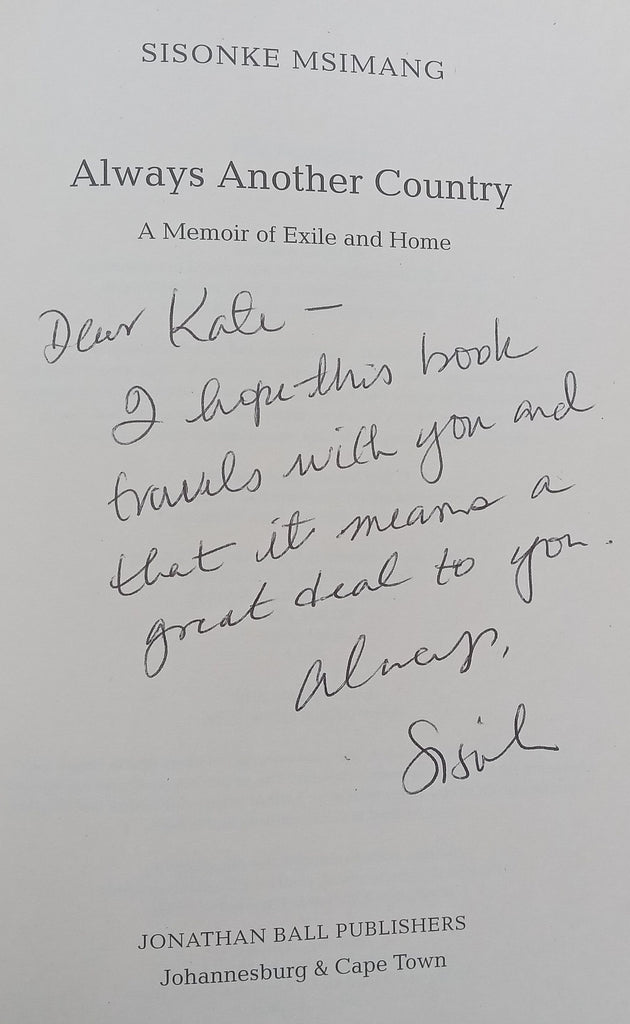 SISONKE MSIMANG
Always Another Country
A Memoir of Exile and Home
Dear Kate –
I hope this book
travels with you and
that it means a
great deal to you.
Always,
JONATHAN BALL PUBLISHERS
Johannesburg & Cape Town